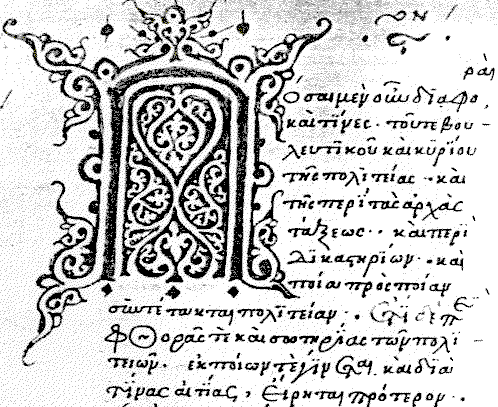 ραὶ
Πόσαι μὲν οὖν διαφο
καὶ τίνες · τοῦ τε βου -
λευτικοῦ καὶ κυρίου
τῆς πολιτείας · καὶ
τῆς περὶ τὰς ἀρχὰς
τάξεως · καὶ περὶ
δικαστηρίων · καὶ
ποία πρὸς ποίαν
συντέτακται πολιτείαν · ἔτι δὲ περὶ
φθορᾶς τε καὶ σωτηρίας τῶν πολι -
τειῶν · ἐκ ποίων τε γίνεται καὶ διὰ
τίνας αἰτίας, εἴρηται πρότερον ·